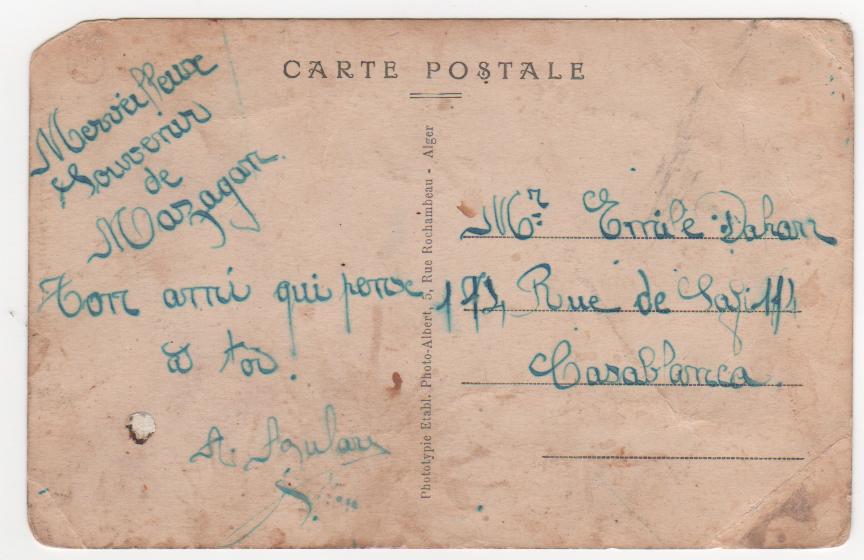 CARTE POSTALE
Merveilleux
Souvenir
de
Mazagan.
Ton ami qui pense
à toi.
Phototypie Etabl. Photo-Albert, 5, Rue Rochambeau - Alger
Mr Emile Dahan
Rue de Safi
Casablanca.